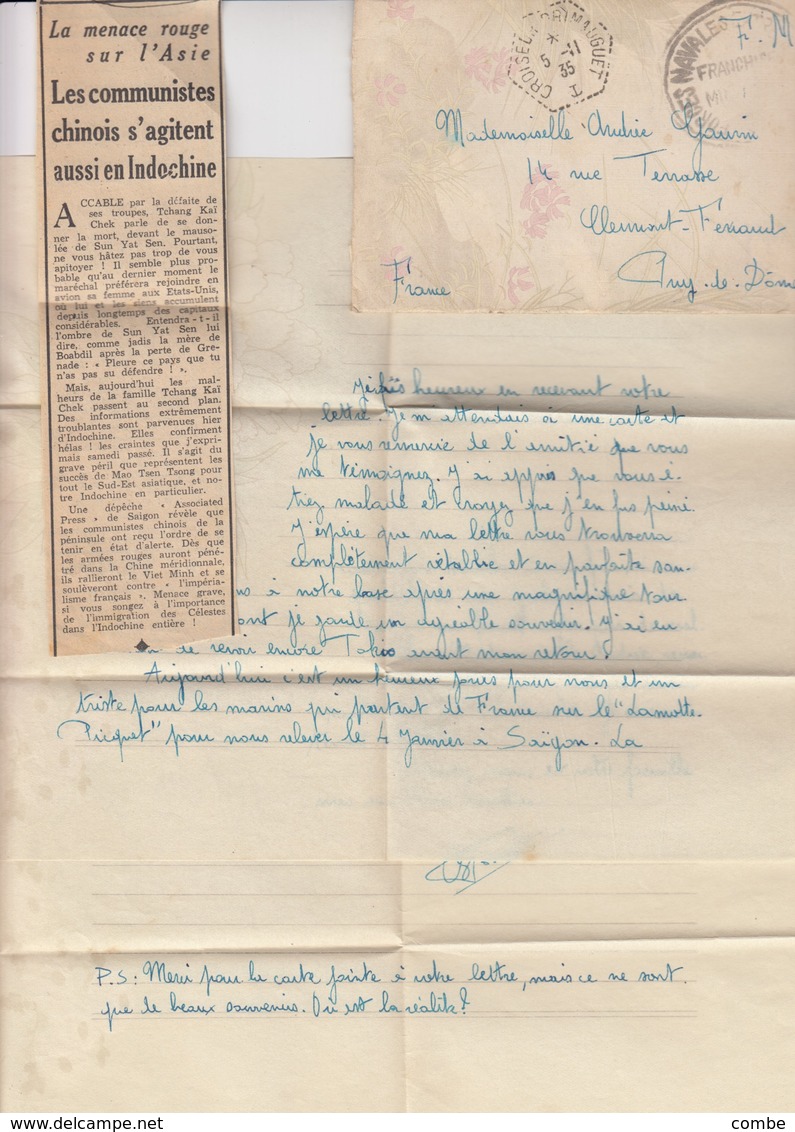 La menace rouge
sur l'Asie
Les communistes
chinois s'agitent
aussi en Indochine
ACCABLE par la défaite de
ses troupes, Tchang Kaï
Chek parle de se don-
ner la mort, devant le mauso-
lée de Sun Yat Sen. Pourtant,
ne vous hâtez pas trop de vous
apitoyer ! Il semble plus pro-
bable qu'au dernier moment le
maréchal préférera rejoindre en
avion sa femme aux Etats-Unis,
où lui et les siens accumulent
depuis longtemps des capitaux
considérables. Entendra-t-il
l'ombre de Sun Yat Sen lui
dire, comme jadis la mère de
Boabdil après la perte de Gre-
nade : « Pleure ce pays que tu
n'as pas su défendre ! ».
Mais, aujourd'hui les mal-
heurs de la famille Tchang Kaï
Chek passent au second plan.
Des informations extrêmement
troublantes sont parvenues hier
d'Indochine. Elles confirment
hélas ! les craintes que j'expri-
mais samedi passé. Il s'agit du
grave péril que représentent les
succès de Mao Tsen Tsong pour
tout le Sud-Est asiatique, et no-
tre Indochine en particulier.
Une dépêche « Associated
Press » de Saigon révèle que
les communistes chinois de la
péninsule ont reçu l'ordre de se
tenir en état d'alerte. Dès que
les armées rouges auront péné-
tré dans la Chine méridionale,
ils rallieront le Viet Minh et se
soulèveront contre « l'impéria-
lisme français ». Menace grave,
si vous songez à l'importance
de l'immigration des Célestes
dans l'Indochine entière !
CROISEUR PRIMAUGUET
*
5 -11
35
NAVALES
FRANCHISE
F. M
Mademoiselle Andrée
14 rue Terrasse
Clermont-Ferrand
Puy-de-Dôme
France
heureux en recevant votre
lettre. Je m'attendais à une carte et
je vous remercie de l'amitié que vous
me témoignez. J'ai appris que vous é-
tiez malade et croyez que j'en fus peiné.
J'espère que ma lettre vous trouvera
complètement rétablie et en parfaite san-
à notre base après une magnifique tour
ont je garde un agréable souvenir. J'ai eu
de revoir encore Tokio avant mon retour.
Aujourd'hui c'est un heureux jour pour nous et un
triste pour les marins qui partent de France sur le "Lamotte-
Picquet" pour nous relever le 4 Janvier à Saïgon. La
P.S: Merci pour la carte jointe à votre lettre, mais ce ne sont
que de beaux souvenirs. Où est la réalité?
www.delcampe.net
combe